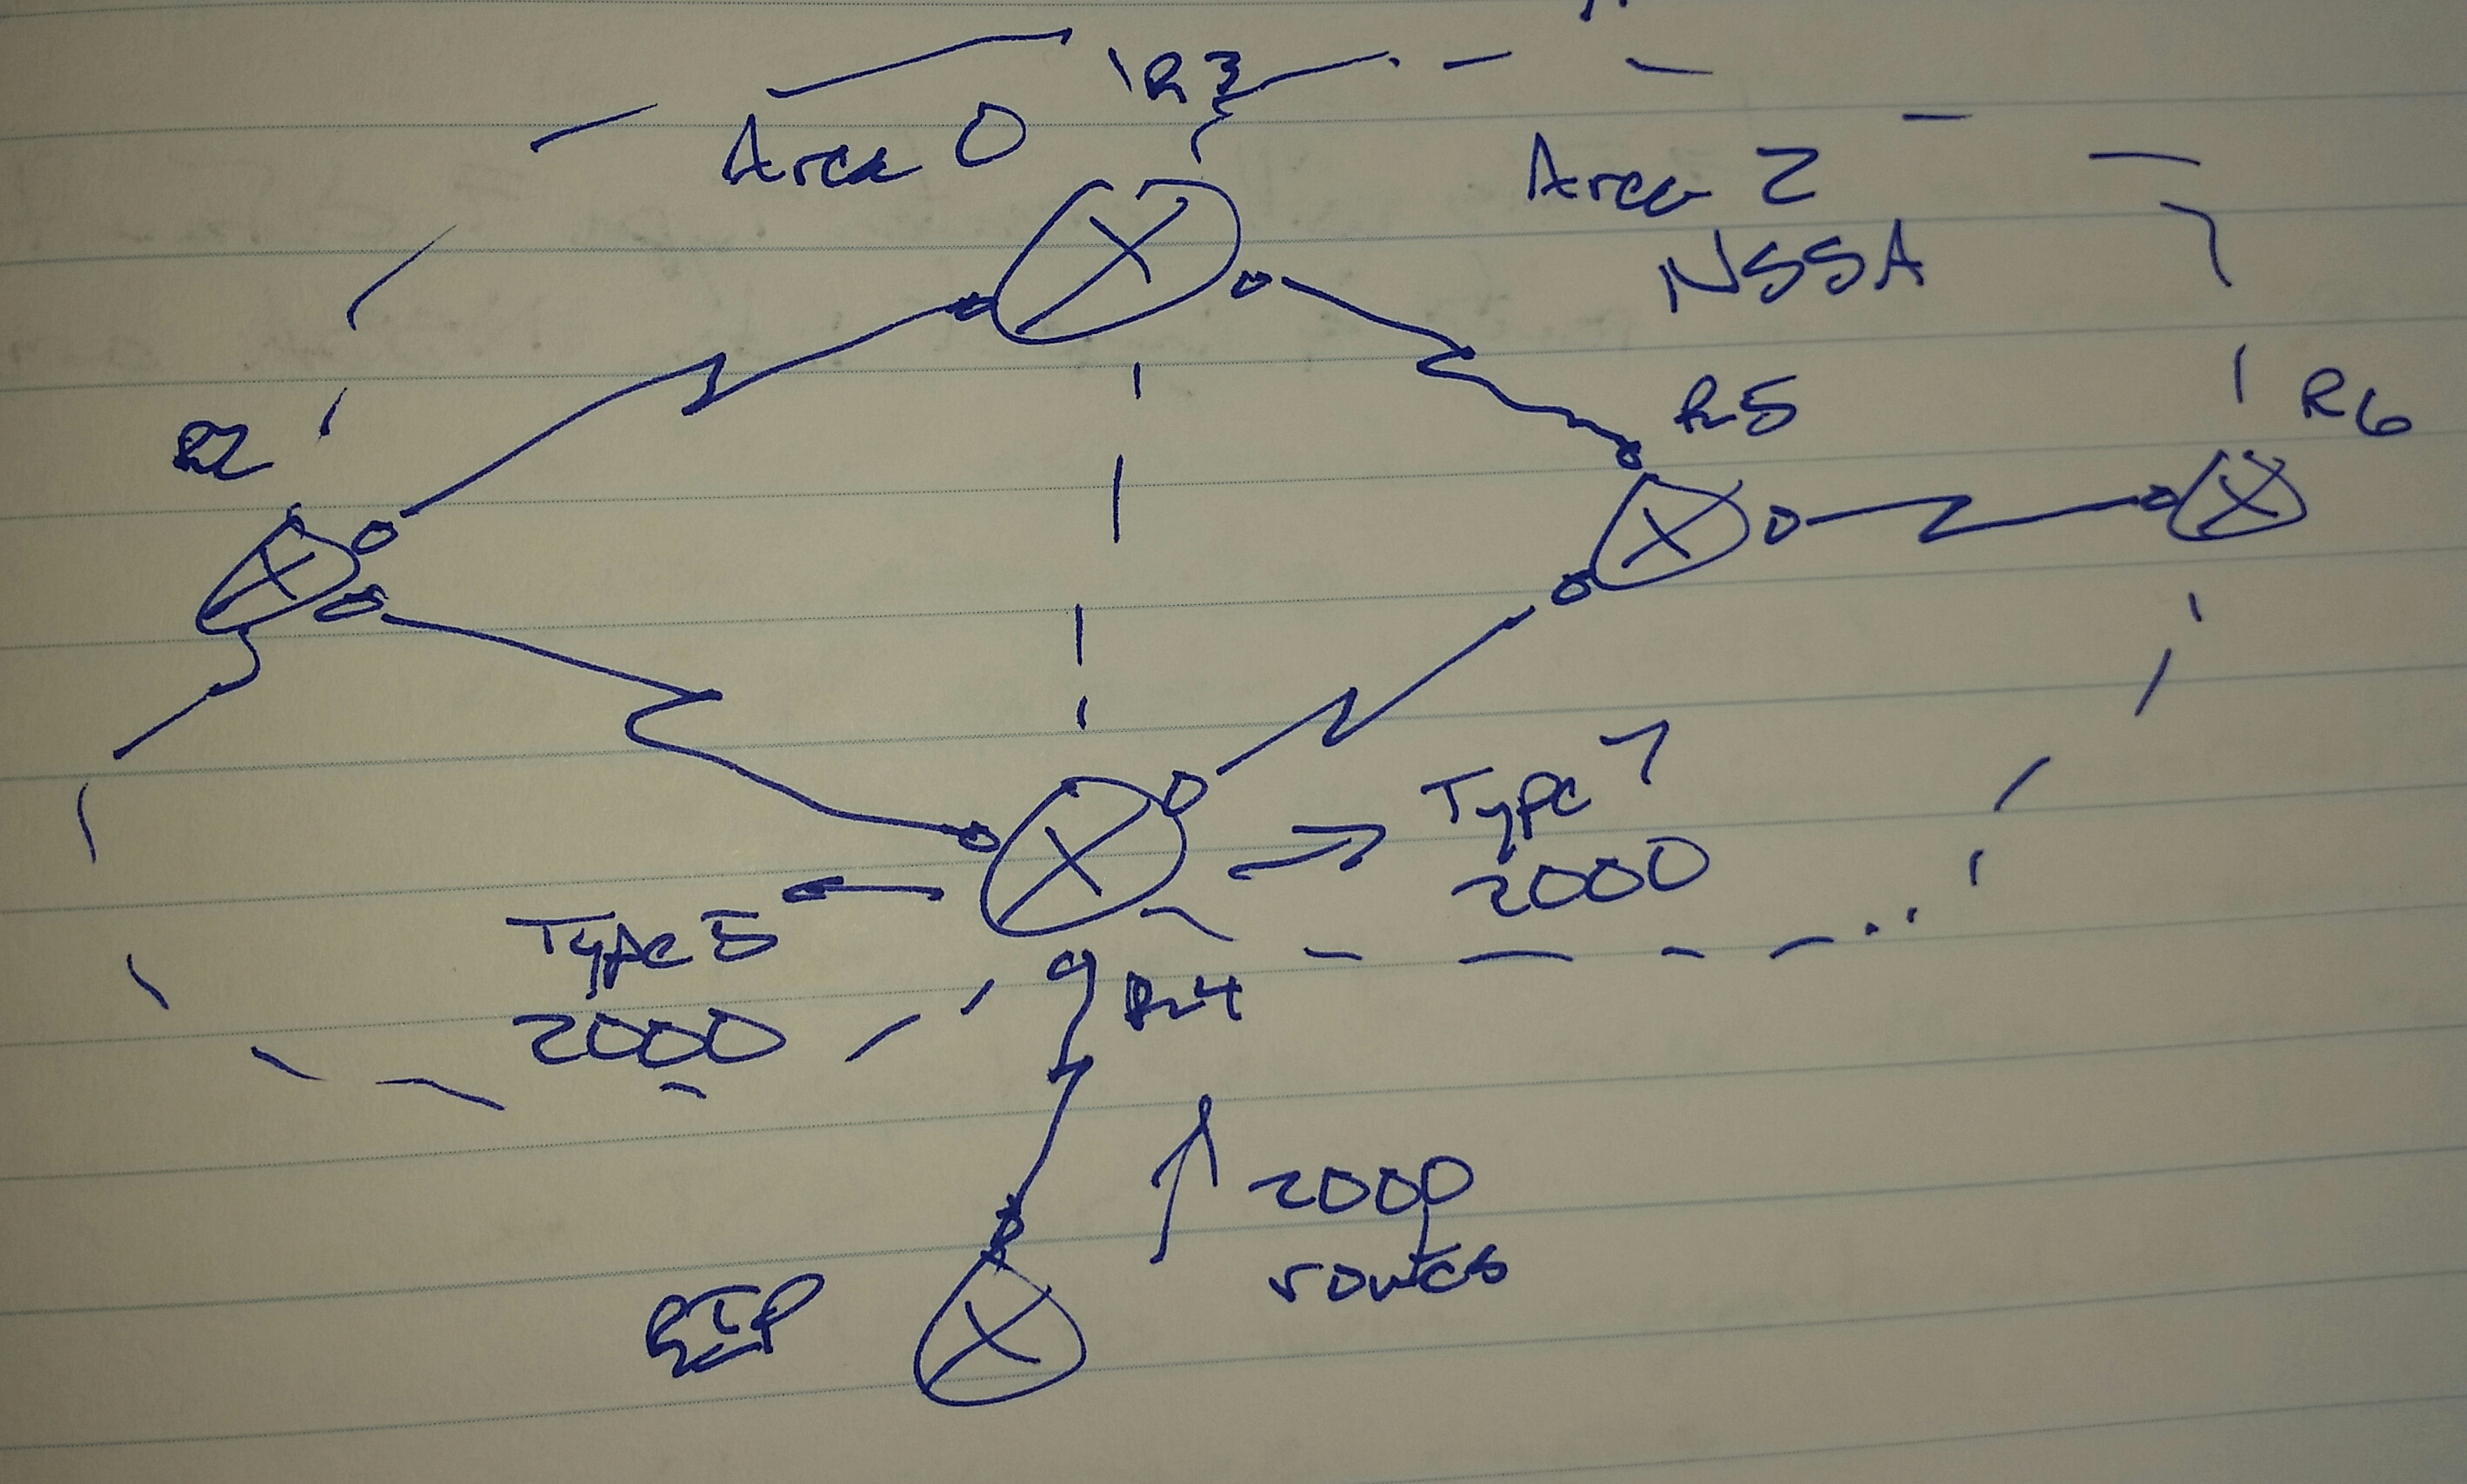 R3
Area 0
Area 2
NSSA
R2
R5
R6
Type 7
2000
Type 5
2000
R4
2000
routes
RIP